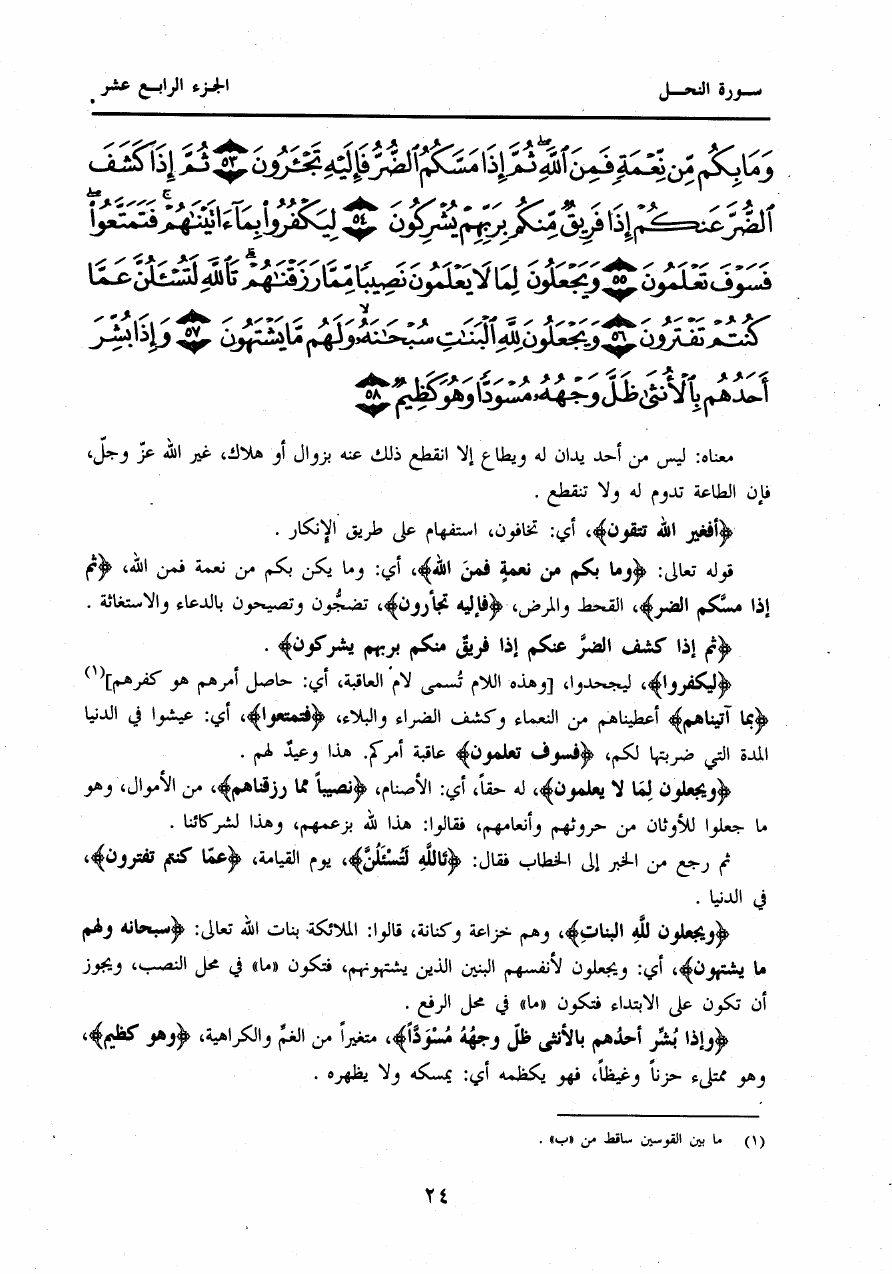 سورة النحل
الجزء الرابع عشر
وَمَا بِكُم مِّن نِّعْمَةٍ فَمِنَ ٱللَّهِ ۖ ثُمَّ إِذَا مَسَّكُمُ ٱلضُّرُّ فَإِلَيْهِ تَجْـَٔرُونَ ٥٣ ثُمَّ إِذَا كَشَفَ
ٱلضُّرَّ عَنكُمْ إِذَا فَرِيقٌ مِّنكُم بِرَبِّهِمْ يُشْرِكُونَ ٥٤ لِيَكْفُرُوا۟ بِمَآ ءَاتَيْنَـٰهُمْ ۚ فَتَمَتَّعُوا۟ ۖ
فَسَوْفَ تَعْلَمُونَ ٥٥ وَيَجْعَلُونَ لِمَا لَا يَعْلَمُونَ نَصِيبًا مِّمَّا رَزَقْنَـٰهُمْ ۗ تَٱللَّهِ لَتُسْـَٔلُنَّ عَمَّا
كُنتُمْ تَفْتَرُونَ ٥٦ وَيَجْعَلُونَ لِلَّهِ ٱلْبَنَـٰتِ سُبْحَـٰنَهُۥ ۙ وَلَهُم مَّا يَشْتَهُونَ ٥٧ وَإِذَا بُشِّرَ
أَحَدُهُم بِٱلْأُنثَىٰ ظَلَّ وَجْهُهُۥ مُسْوَدًّا وَهُوَ كَظِيمٌ ٥٨
معناه: ليس من أحد يدان له ويطاع إلا انقطع ذلك عنه بزوال أو هلاك، غير الله عزّ وجلّ،
فإن الطاعة تدوم له ولا تنقطع .
﴿أفغير الله تتقون﴾، أي: تخافون، استفهام على طريق الإنكار .
قوله تعالى: ﴿وما بكم من نعمةٍ فمنَ الله﴾، أي: وما يكن بكم من نعمة فمن الله، ﴿ثم
إذا مسَّكم الضر﴾، القحط والمرض، ﴿فإليه تجأرون﴾، تضجُّون وتصيحون بالدعاء والاستغاثة .
﴿ثم إذا كشف الضرَّ عنكم إذا فريقٌ منكم بربهم يشركون﴾ .
﴿ليكفروا﴾، ليجحدوا، [وهذه اللام تُسمى لام العاقبة، أي: حاصل أمرهم هو كفرهم](١)
﴿بما آتيناهم﴾ أعطيناهم من النعماء وكشف الضراء والبلاء، ﴿فتمتعوا﴾، أي: عيشوا في الدنيا
المدة التي ضربتها لكم، ﴿فسوف تعلمون﴾ عاقبة أمركم. هذا وعيدٌ لهم .
﴿ويجعلون لِمَا لا يعلمون﴾، له حقاً، أي: الأصنام، ﴿نصيباً مما رزقناهم﴾، من الأموال، وهو
ما جعلوا للأوثان من حروثهم وأنعامهم، فقالوا: هذا لله بزعمهم، وهذا لشركائنا .
ثم رجع من الخبر إلى الخطاب فقال: ﴿تَاللَّهِ لَتُسْئَلُنَّ﴾، يوم القيامة، ﴿عمّا كنتم تفترون﴾،
في الدنيا .
﴿ويجعلون للَّهِ البناتِ﴾، وهم خزاعة وكنانة، قالوا: الملائكة بنات الله تعالى: ﴿سبحانه ولهم
ما يشتهون﴾، أي: ويجعلون لأنفسهم البنين الذين يشتهونهم، فتكون «ما» في محل النصب، ويجوز
أن تكون على الابتداء فتكون «ما» في محل الرفع .
﴿وإذا بُشِّر أحدُهم بالأنثى ظلّ وجهُهُ مُسْوَدَّاً﴾، متغيراً من الغمِّ والكراهية، ﴿وهو كظيم﴾،
وهو ممتلىء حزناً وغيظاً، فهو يكظمه أي: يمسكه ولا يظهره .
(١) ما بين القوسين ساقط من «ب» .
٢٤